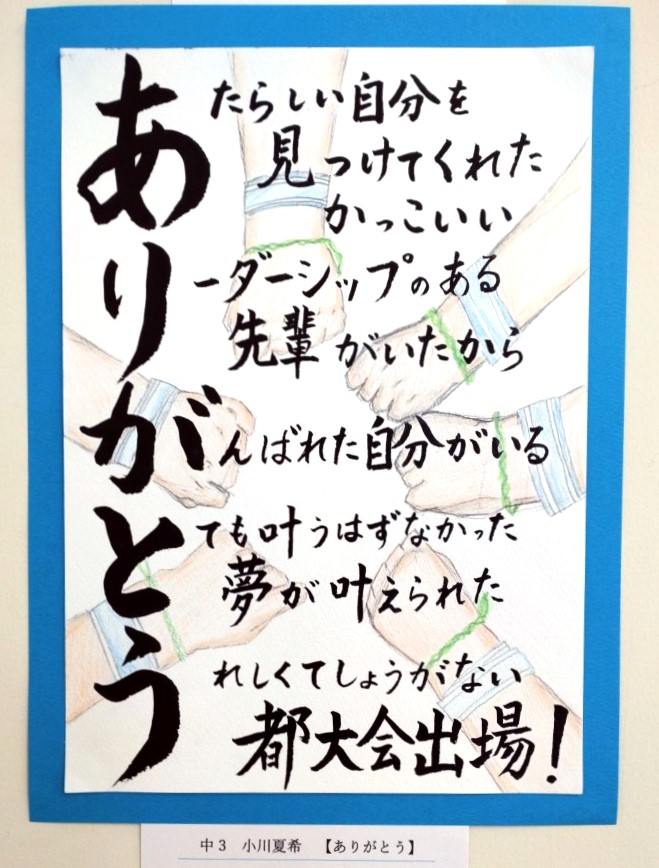 ありがとう
たらしい自分を
見つけてくれた
かっこいい
ーダーシップのある
先輩がいたから
んばれた自分がいる
ても叶うはずなかった
夢が叶えられた
れしくてしょうがない
都大会出場!
中3 小川夏希 【ありがとう】